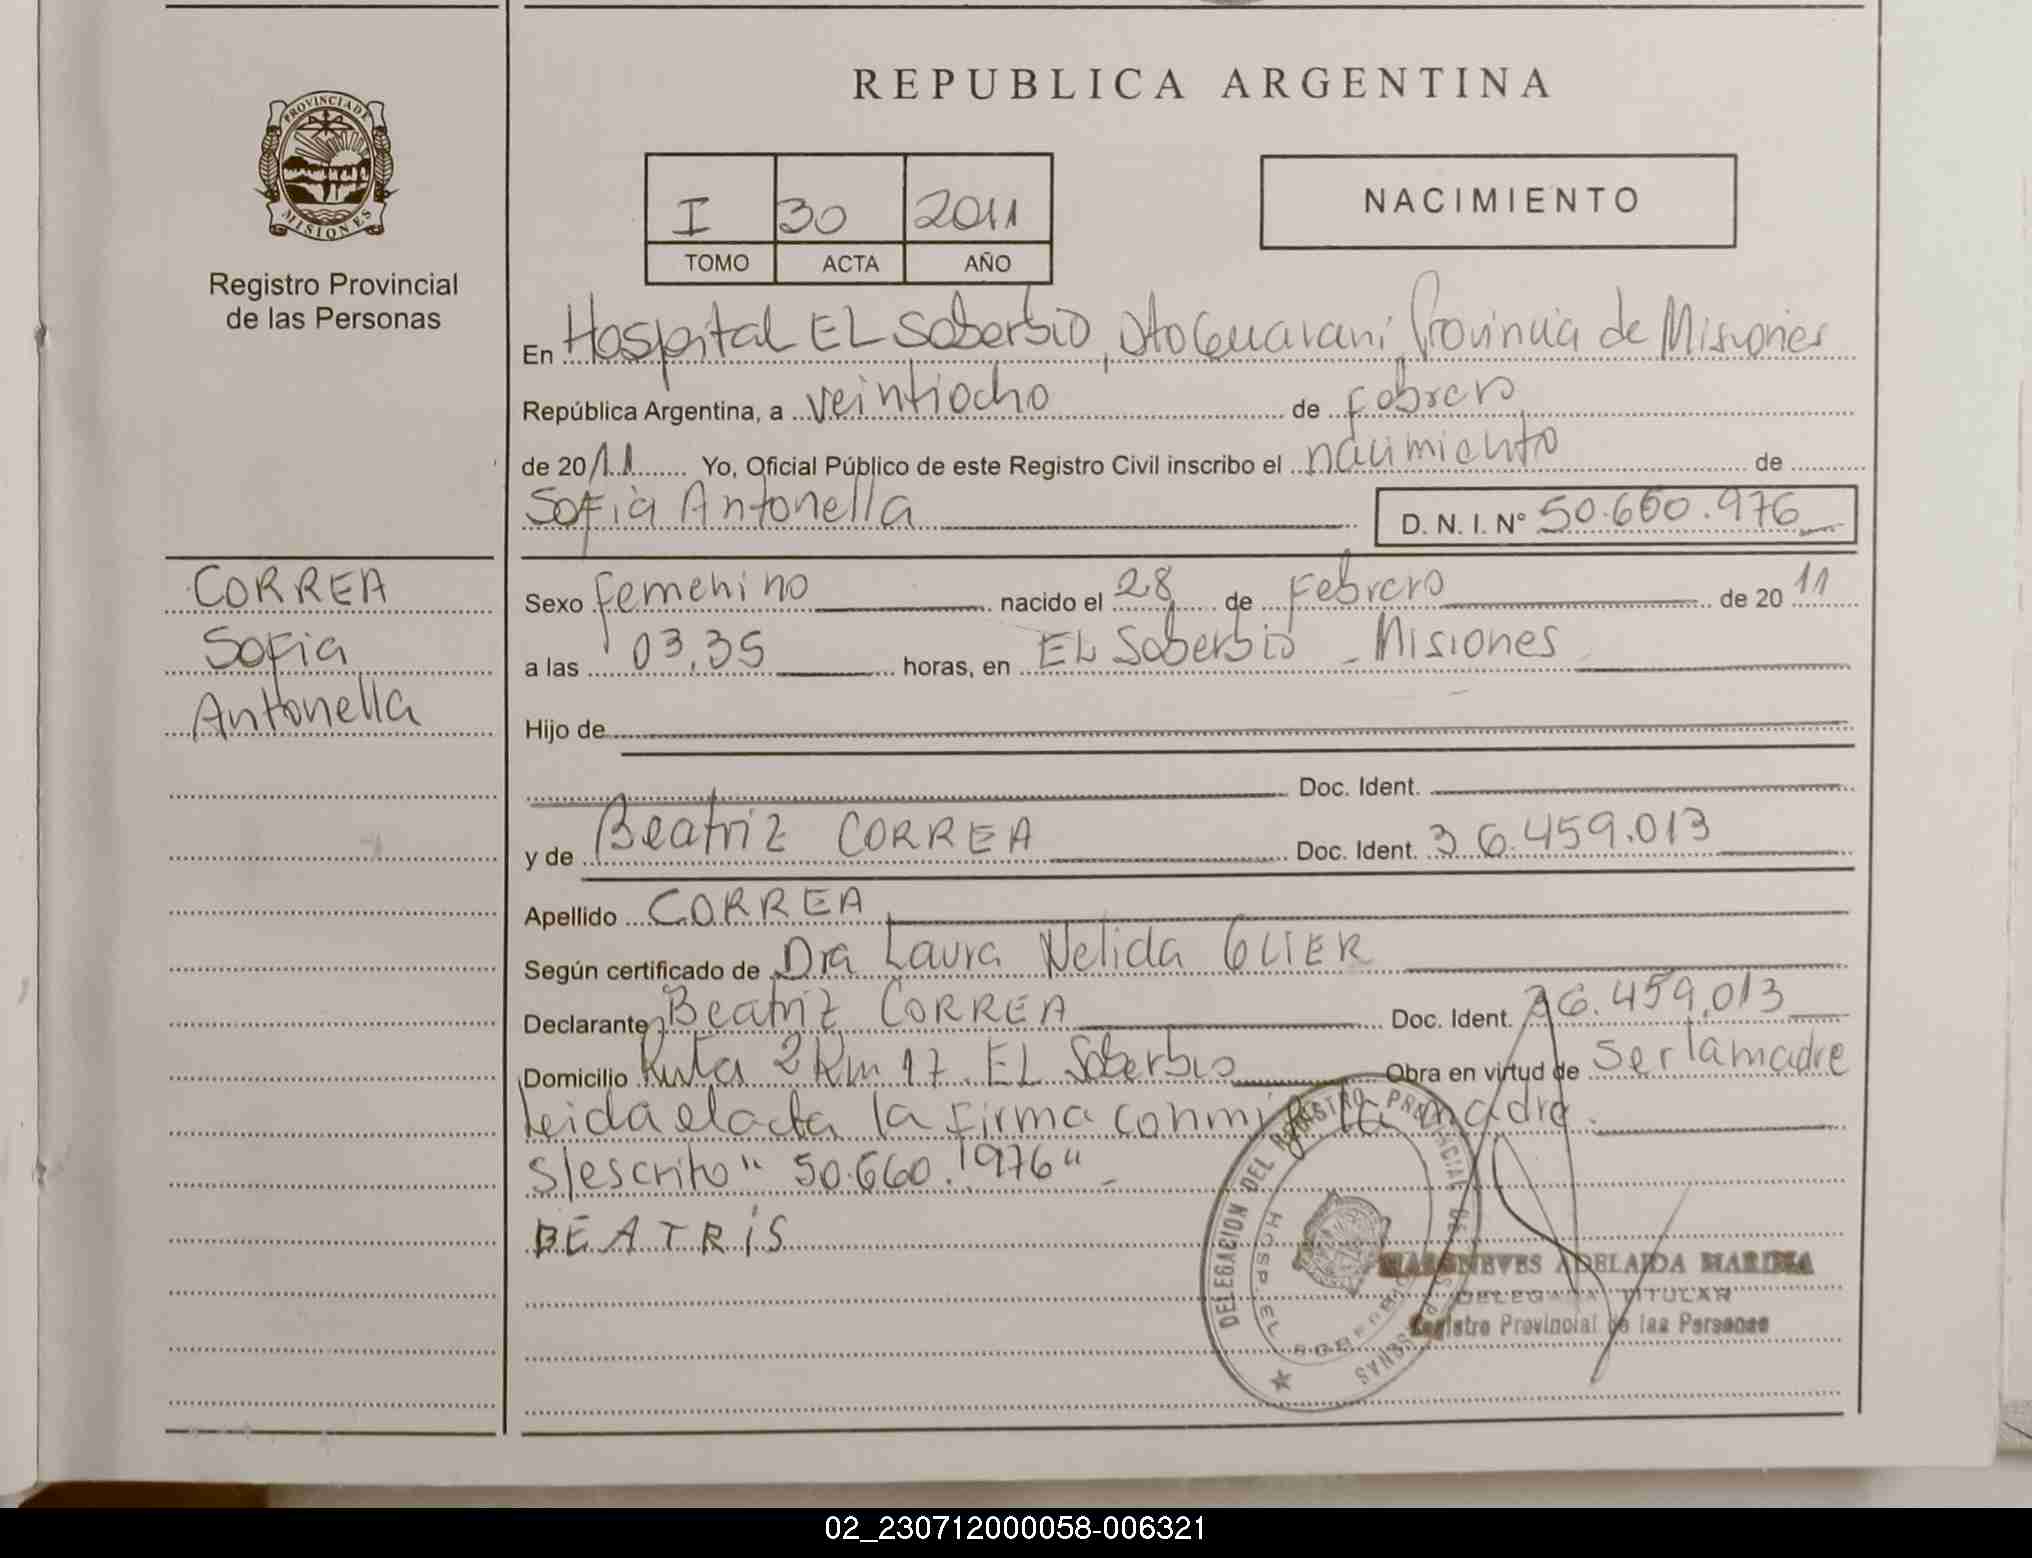 REPUBLICA ARGENTINA
PROVINCIA DE
MISIONES
Registro Provincial
de las Personas
I 30 2011
TOMO ACTA AÑO
NACIMIENTO
En Hospital EL Soberbio, Dto Guarani, Provincia de Misiones
República Argentina, a veintiocho de febrero
de 2011 Yo, Oficial Público de este Registro Civil inscribo el nacimiento de
Sofia Antonella D. N. I. N° 50.660.976
CORREA
Sofia
Antonella
Sexo femenino nacido el 28 de Febrero de 2011
a las 03,35 horas, en EL Soberbio - Misiones
Hijo de
Doc. Ident.
y de Beatriz CORREA Doc. Ident. 36.459.013
Apellido CORREA
Según certificado de Dra Laura Nelida GLIER
Declarante Beatriz CORREA Doc. Ident. 36.459.013
Domicilio Ruta 2 Km 17. EL Soberbio Obra en virtud de ser la madre
leida el acta la firma conmigo la madre.
S/escrito "50.660.976"-
BEATRIS
DELEGACION DEL REGISTRO PROVINCIAL DE LAS PERSONAS
HOSP. EL SOBERBIO
ADELAIDA MARINA
DELEGADA TITULAR
Registro Provincial de las Personas
02_230712000058-006321